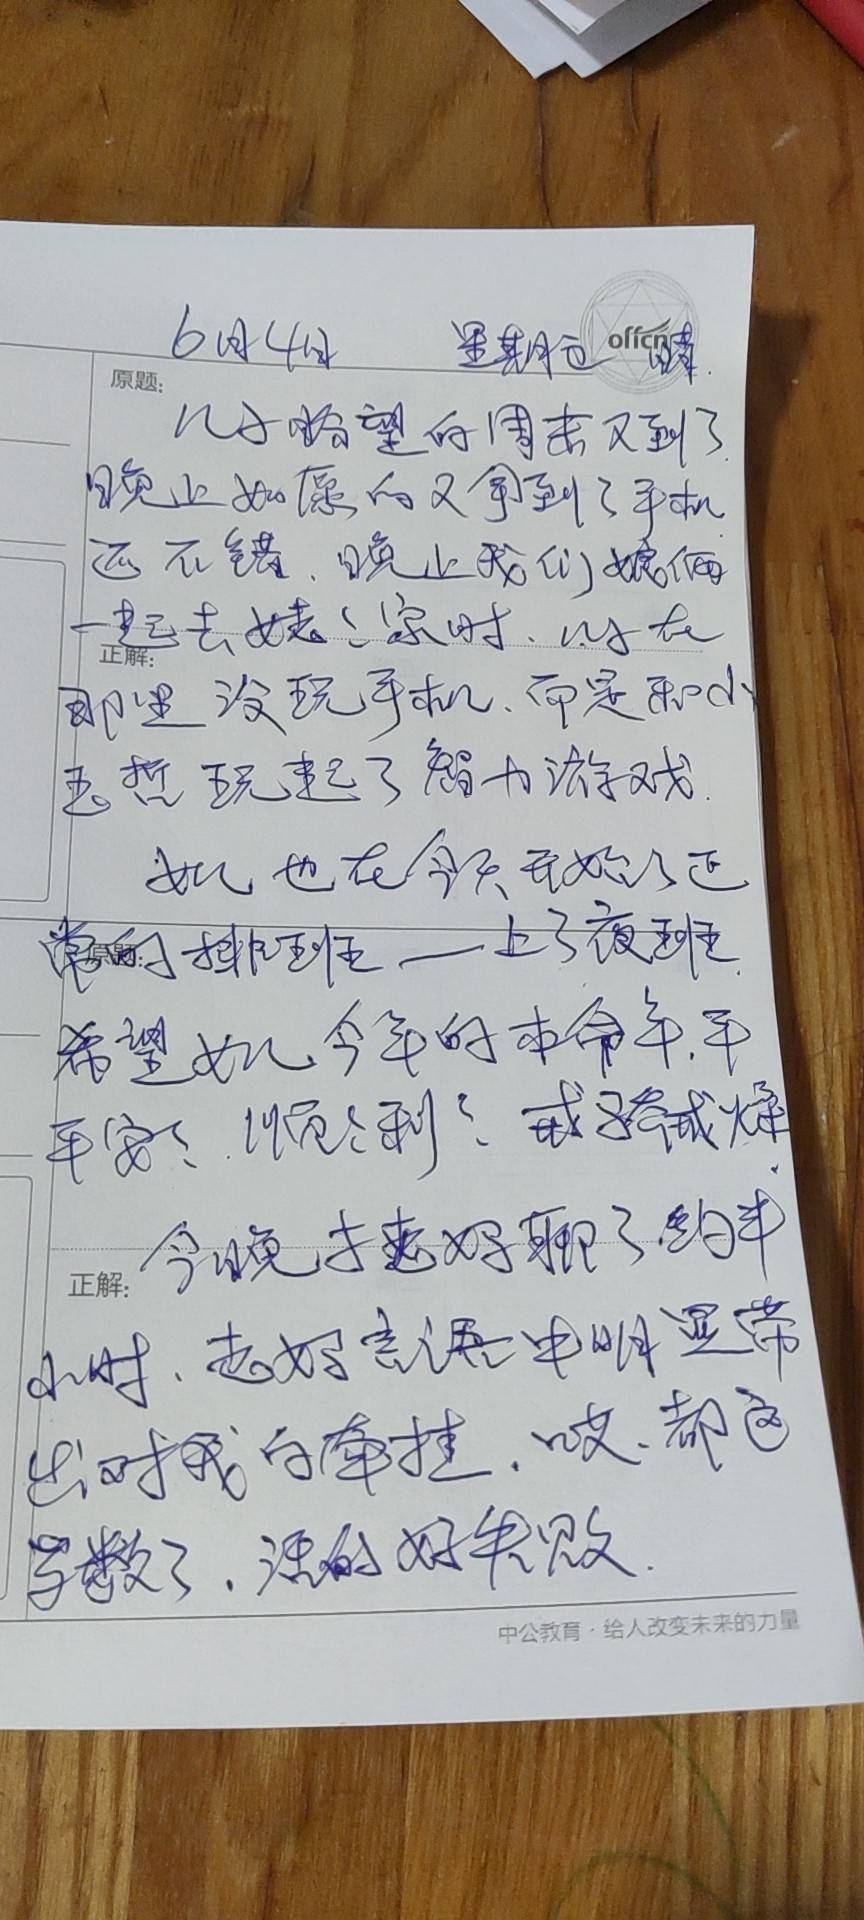 6月4日 星期五 offcn 晴.
原题:
儿子盼望的周末又到了.
晚上如愿的又拿到了手机
还不错、晚上我们娘俩
一起去姥姥家时、儿子在
正解:
那里没玩手机、而是和小
哲玩起了智力游戏.
女儿也在今天开始了正
常的排班——上了夜班.
原题:
希望女儿今年的本命年、平
平安安、顺顺利利、戒骄戒燥.
今晚才和志好聊了约半
正解:
小时、志好言语中明显带
出对我的牵挂、哎、都这
岁数了、活的好失败.
中公教育·给人改变未来的力量